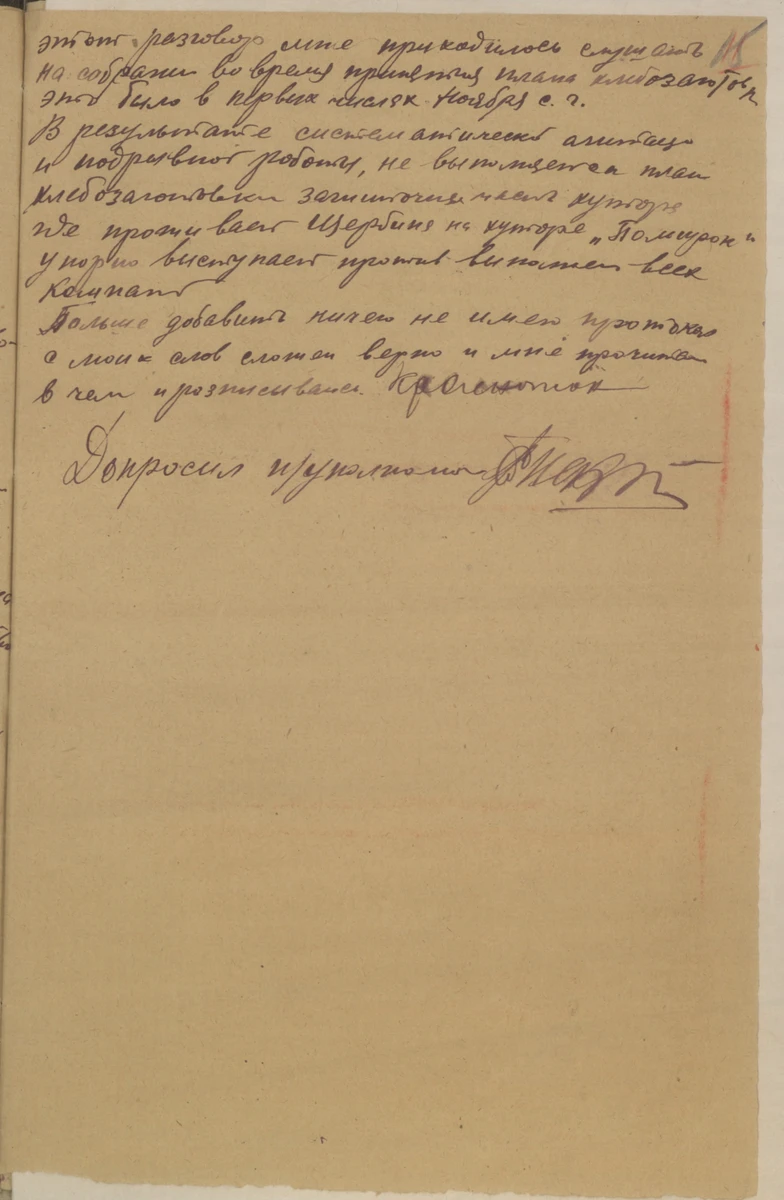 этот разговор мне приходилось слушать
на собрании во время принятия плана хлебозаготов
это было в первых числах Ноября с. г.
В результате систематическо агитаци
и подрывной роботы, не выполняется план
хлебозаготовки зажиточная часть хутора
где проживает Щербина на хуторе „
упорно выступает против выполнен всех
компант
Больше добавить ничего не имею протокол
с моих слов сложен верно и мне прочитан
в чем и розписываюсь
Допросил